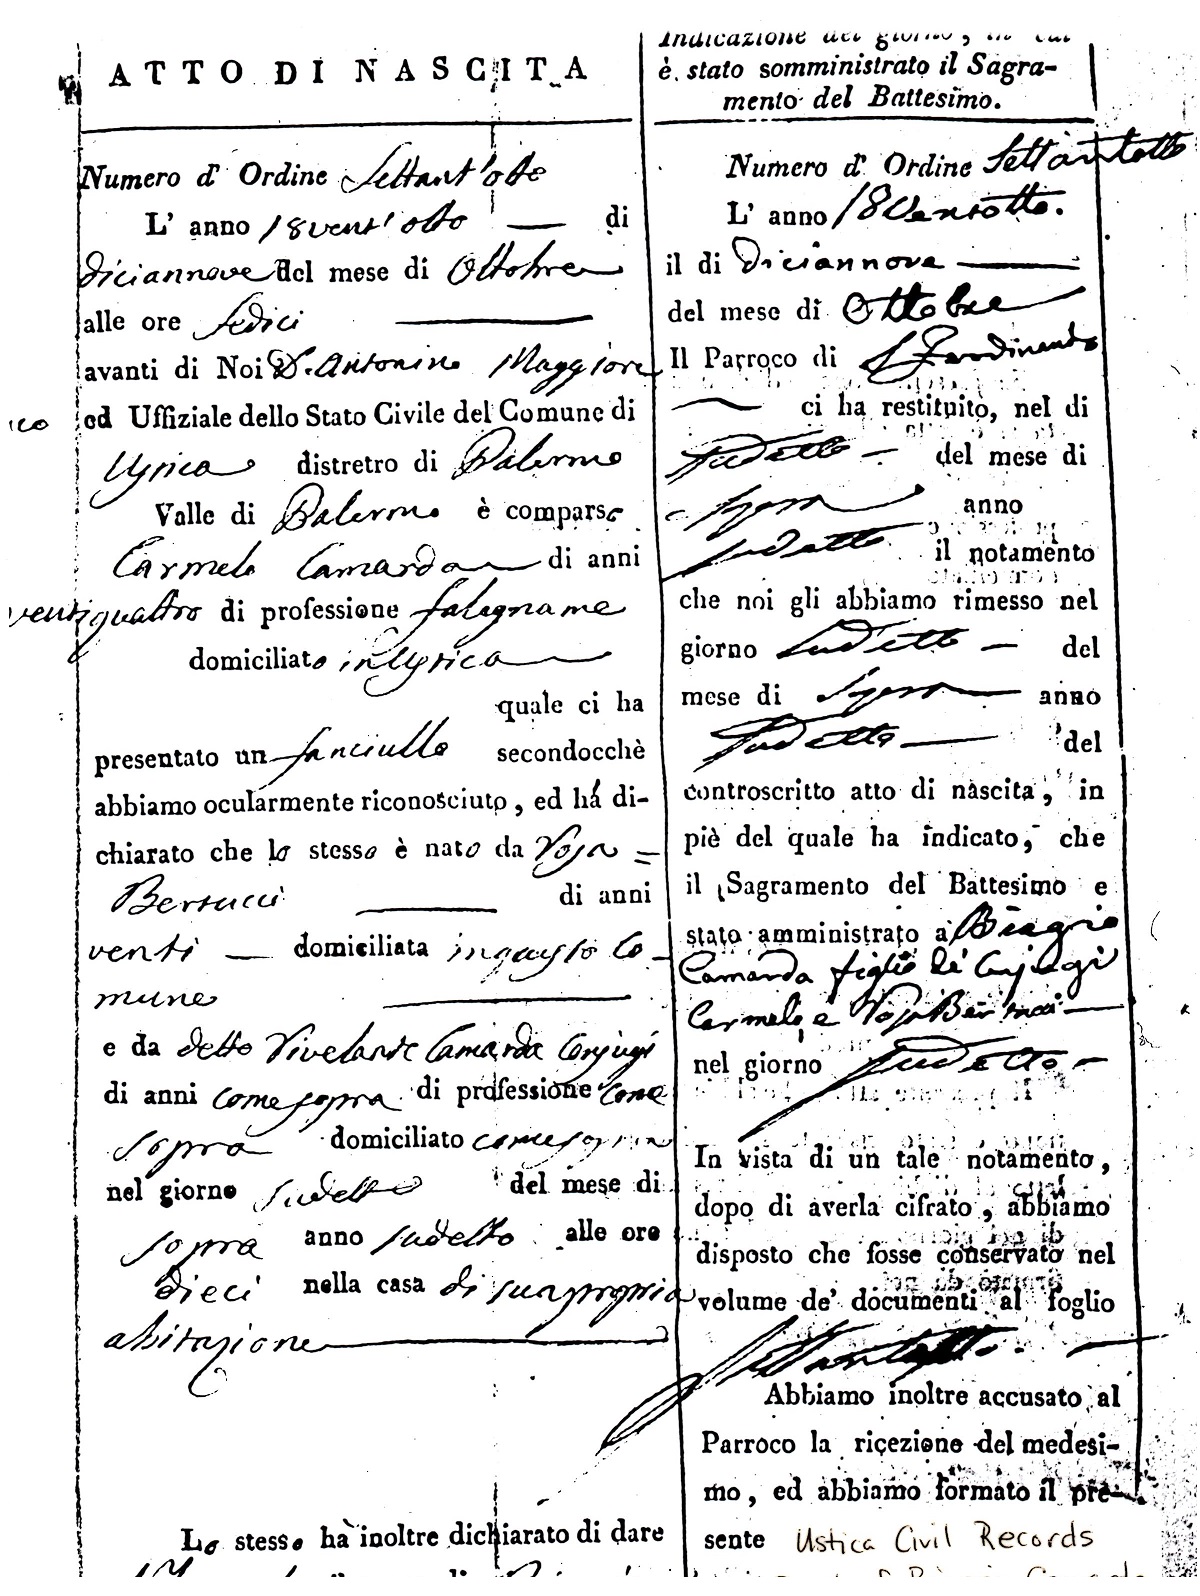 ATTO DI NASCITA
Numero d' Ordine Settant'otto
L' anno 18vent'otto — di
diciannove del mese di Ottobre
alle ore Sedici
avanti di Noi D. Antonino Maggiore
ed Uffiziale dello Stato Civile del Comune di
Ustica distretro di Palermo
Valle di Palermo è comparso
Carmelo Camarda di anni
ventiquattro di professione falegname
domiciliato in Ustica
quale ci ha
presentato un fanciullo secondocchè
abbiamo ocularmente riconosciuto, ed há di-
chiarato che lo stesso è nato da Rosa =
Bertucci di anni
venti — domiciliata in questo Co-
mune
e da detto Rivelante Camarda Conjugi
di anni come sopra di professione come
sopra domiciliato come sopra
nel giorno sudetto del mese di
sopra anno sudetto alle ore
dieci nella casa di sua propria
abitazione
Lo stesso hà inoltre dichiarato di dare
Indicazione del giorno, in cui
è stato somministrato il Sagra-
mento del Battesimo.
Numero d' Ordine Settantotto
L' anno 18Ventotto.
il di Diciannove
del mese di Ottobre
Il Parroco di S Ferdinando
ci ha restituito, nel di
sudetto — del mese di
sopra anno
sudetto il notamento
che noi gli abbiamo rimesso nel
giorno sudetto — del
mese di sopra anno
sudetto — del
controscritto atto di nascita, in
piè del quale ha indicato, che
il Sagramento del Battesimo e
stato amministrato a Biagio
Camarda figlio di Conjugi
Carmelo, e Rosa Bertucci
nel giorno sudetto —
In vista di un tale notamento,
dopo di averla cifrato, abbiamo
disposto che fosse conservato nel
volume de' documenti al foglio
Settantotto.
Abbiamo inoltre accusato al
Parroco la riçezione del medesi-
mo, ed abbiamo formato il pre-
sente Ustica Civil Records